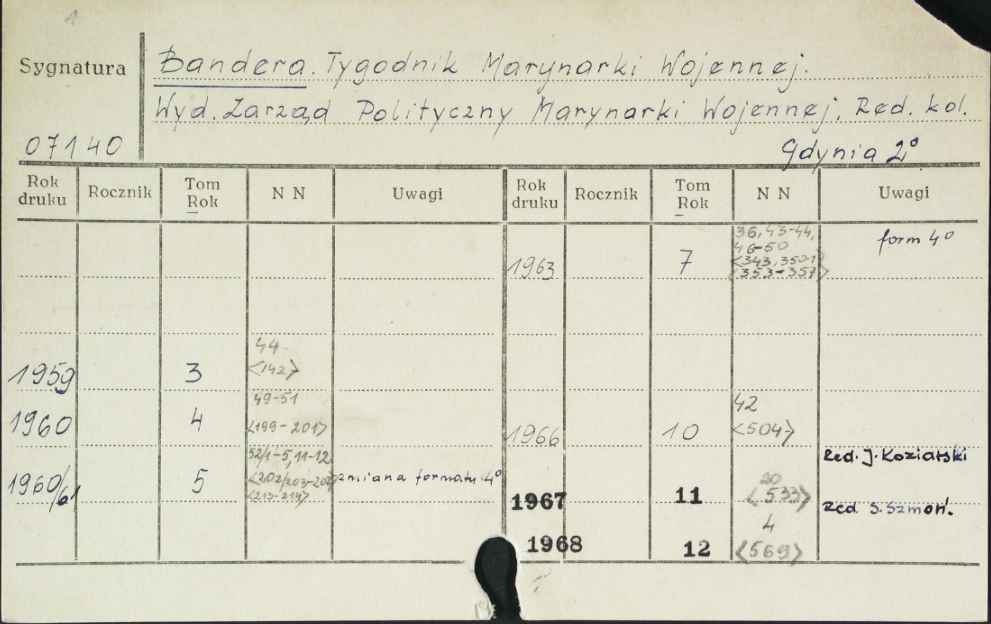 Sygnatura
07140
Bandera. Tygodnik Marynarki Wojennej.
Wyd. Zarząd Polityczny Marynarki Wojennej, Red. kol.
Gdynia 2°
Rok druku Rocznik Tom Rok N N Uwagi Rok druku Rocznik Tom Rok N N Uwagi
1963 7 36, 43-44, form 4°
46-50
<343, 350-1
<353-357>
1959 3 44
<142>
1960 4 49-51
<199-201>
1966 10 42
<504>
1960/61 5 52/1-5, 11-12 zmiana formatu 4°
Red. J. Koziarski
1967 11 20
<533>
Red S. Szmoń.
1968 12 4
<569>